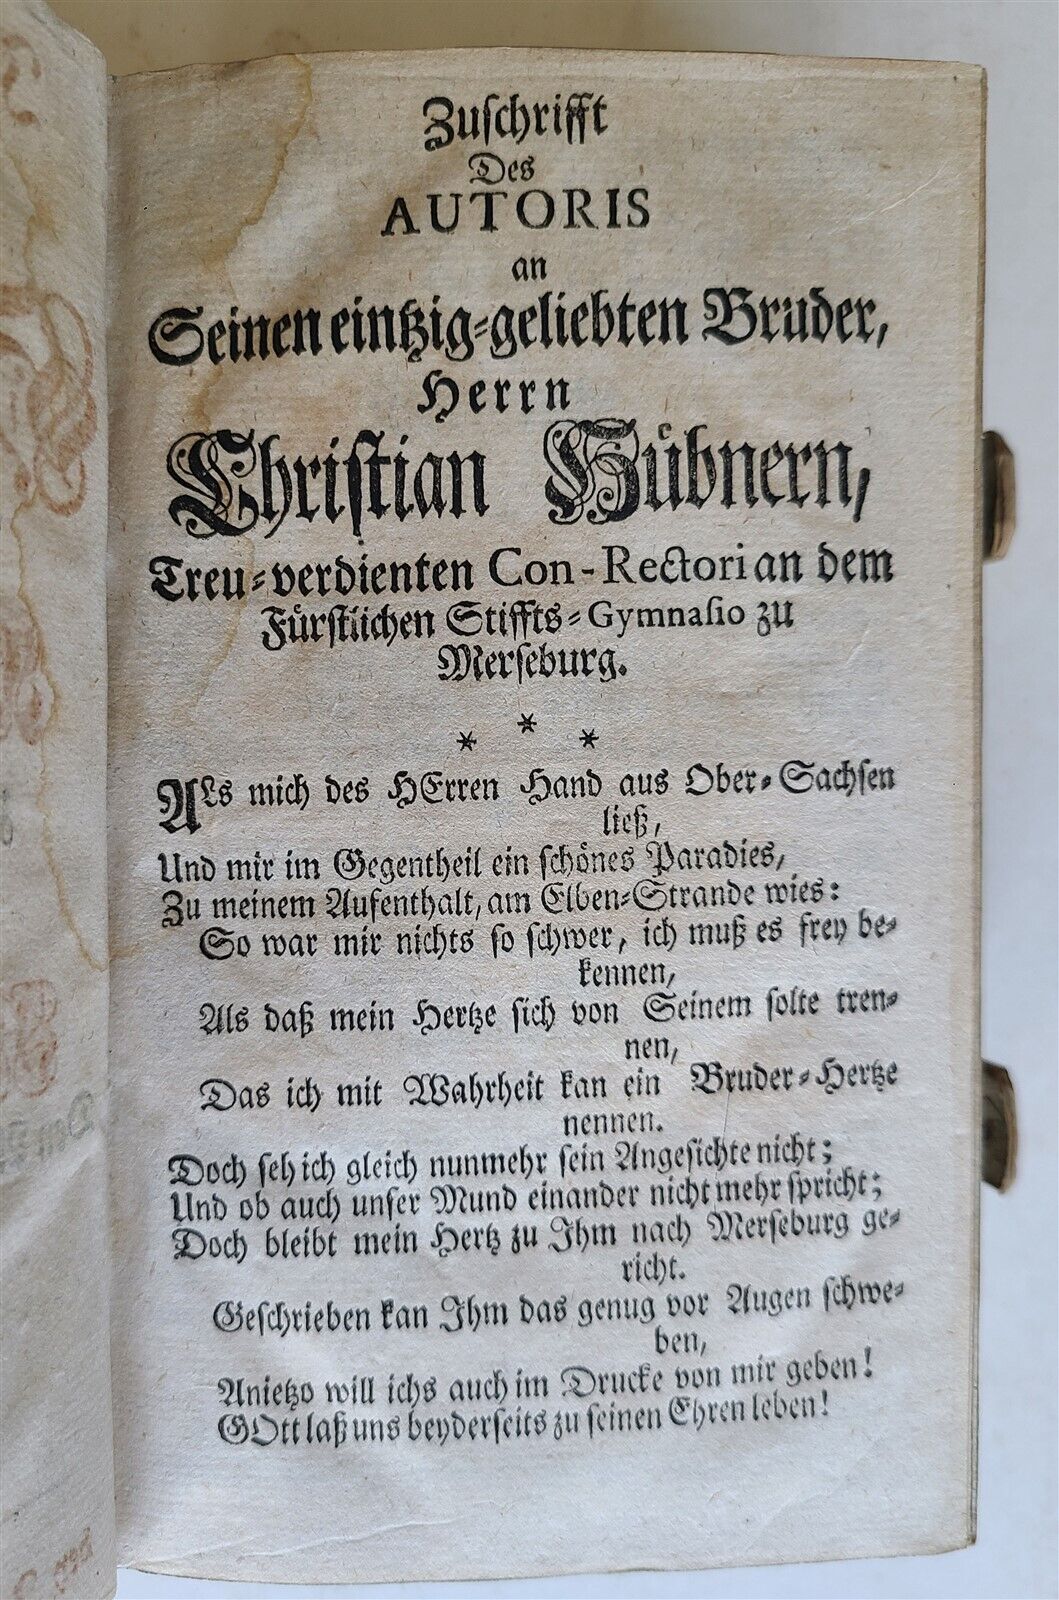 Zuſchrifft
Des
AUTORIS
an
Seinen eintzig-geliebten Bruder,
Herrn
Chriſtian Hübnern,
Treu-verdienten Con-Rectori an dem
Fürſtlichen Stiffts-Gymnaſio zu
Merſeburg.
* * *
ALs mich des HErren Hand aus Ober-Sachſen
ließ,
Und mir im Gegentheil ein ſchönes Paradies,
Zu meinem Aufenthalt, am Elben-Strande wies:
So war mir nichts ſo ſchwer, ich muß es frey be-
kennen,
Als daß mein Hertze ſich von Seinem ſolte tren-
nen,
Das ich mit Wahrheit kan ein Bruder-Hertze
nennen.
Doch ſeh ich gleich nunmehr ſein Angeſichte nicht;
Und ob auch unſer Mund einander nicht mehr ſpricht;
Doch bleibt mein Hertz zu Ihm nach Merſeburg ge-
richt.
Geſchrieben kan Ihm das genug vor Augen ſchwe-
ben,
Anietzo will ichs auch im Drucke von mir geben!
GOtt laß uns beyderſeits zu ſeinen Ehren leben!